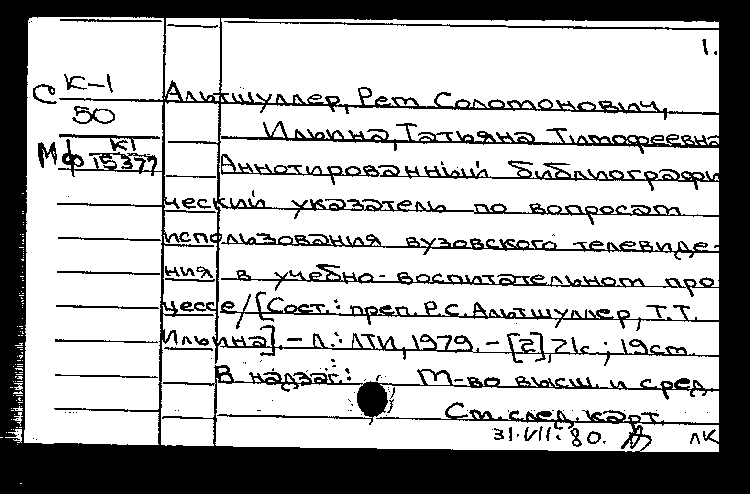 1.
С К-1
50
Мф К1
15377
Альтшуллер, Рем Соломонович,
Ильина, Татьяна Тимофеевна
Аннотированный библиографи
ческий указатель по вопросам
использования вузовского телевиде-
ния в учебно-воспитательном про
цессе/[Сост.: преп. Р.С. Альтшуллер, Т.Т.
Ильина]. – Л.: ЛТИ, 1979. – [2], 21с.; 19см.
В надзаг.: М-во высш. и сред.
См. след. карт.
31.VII.80. ЛК